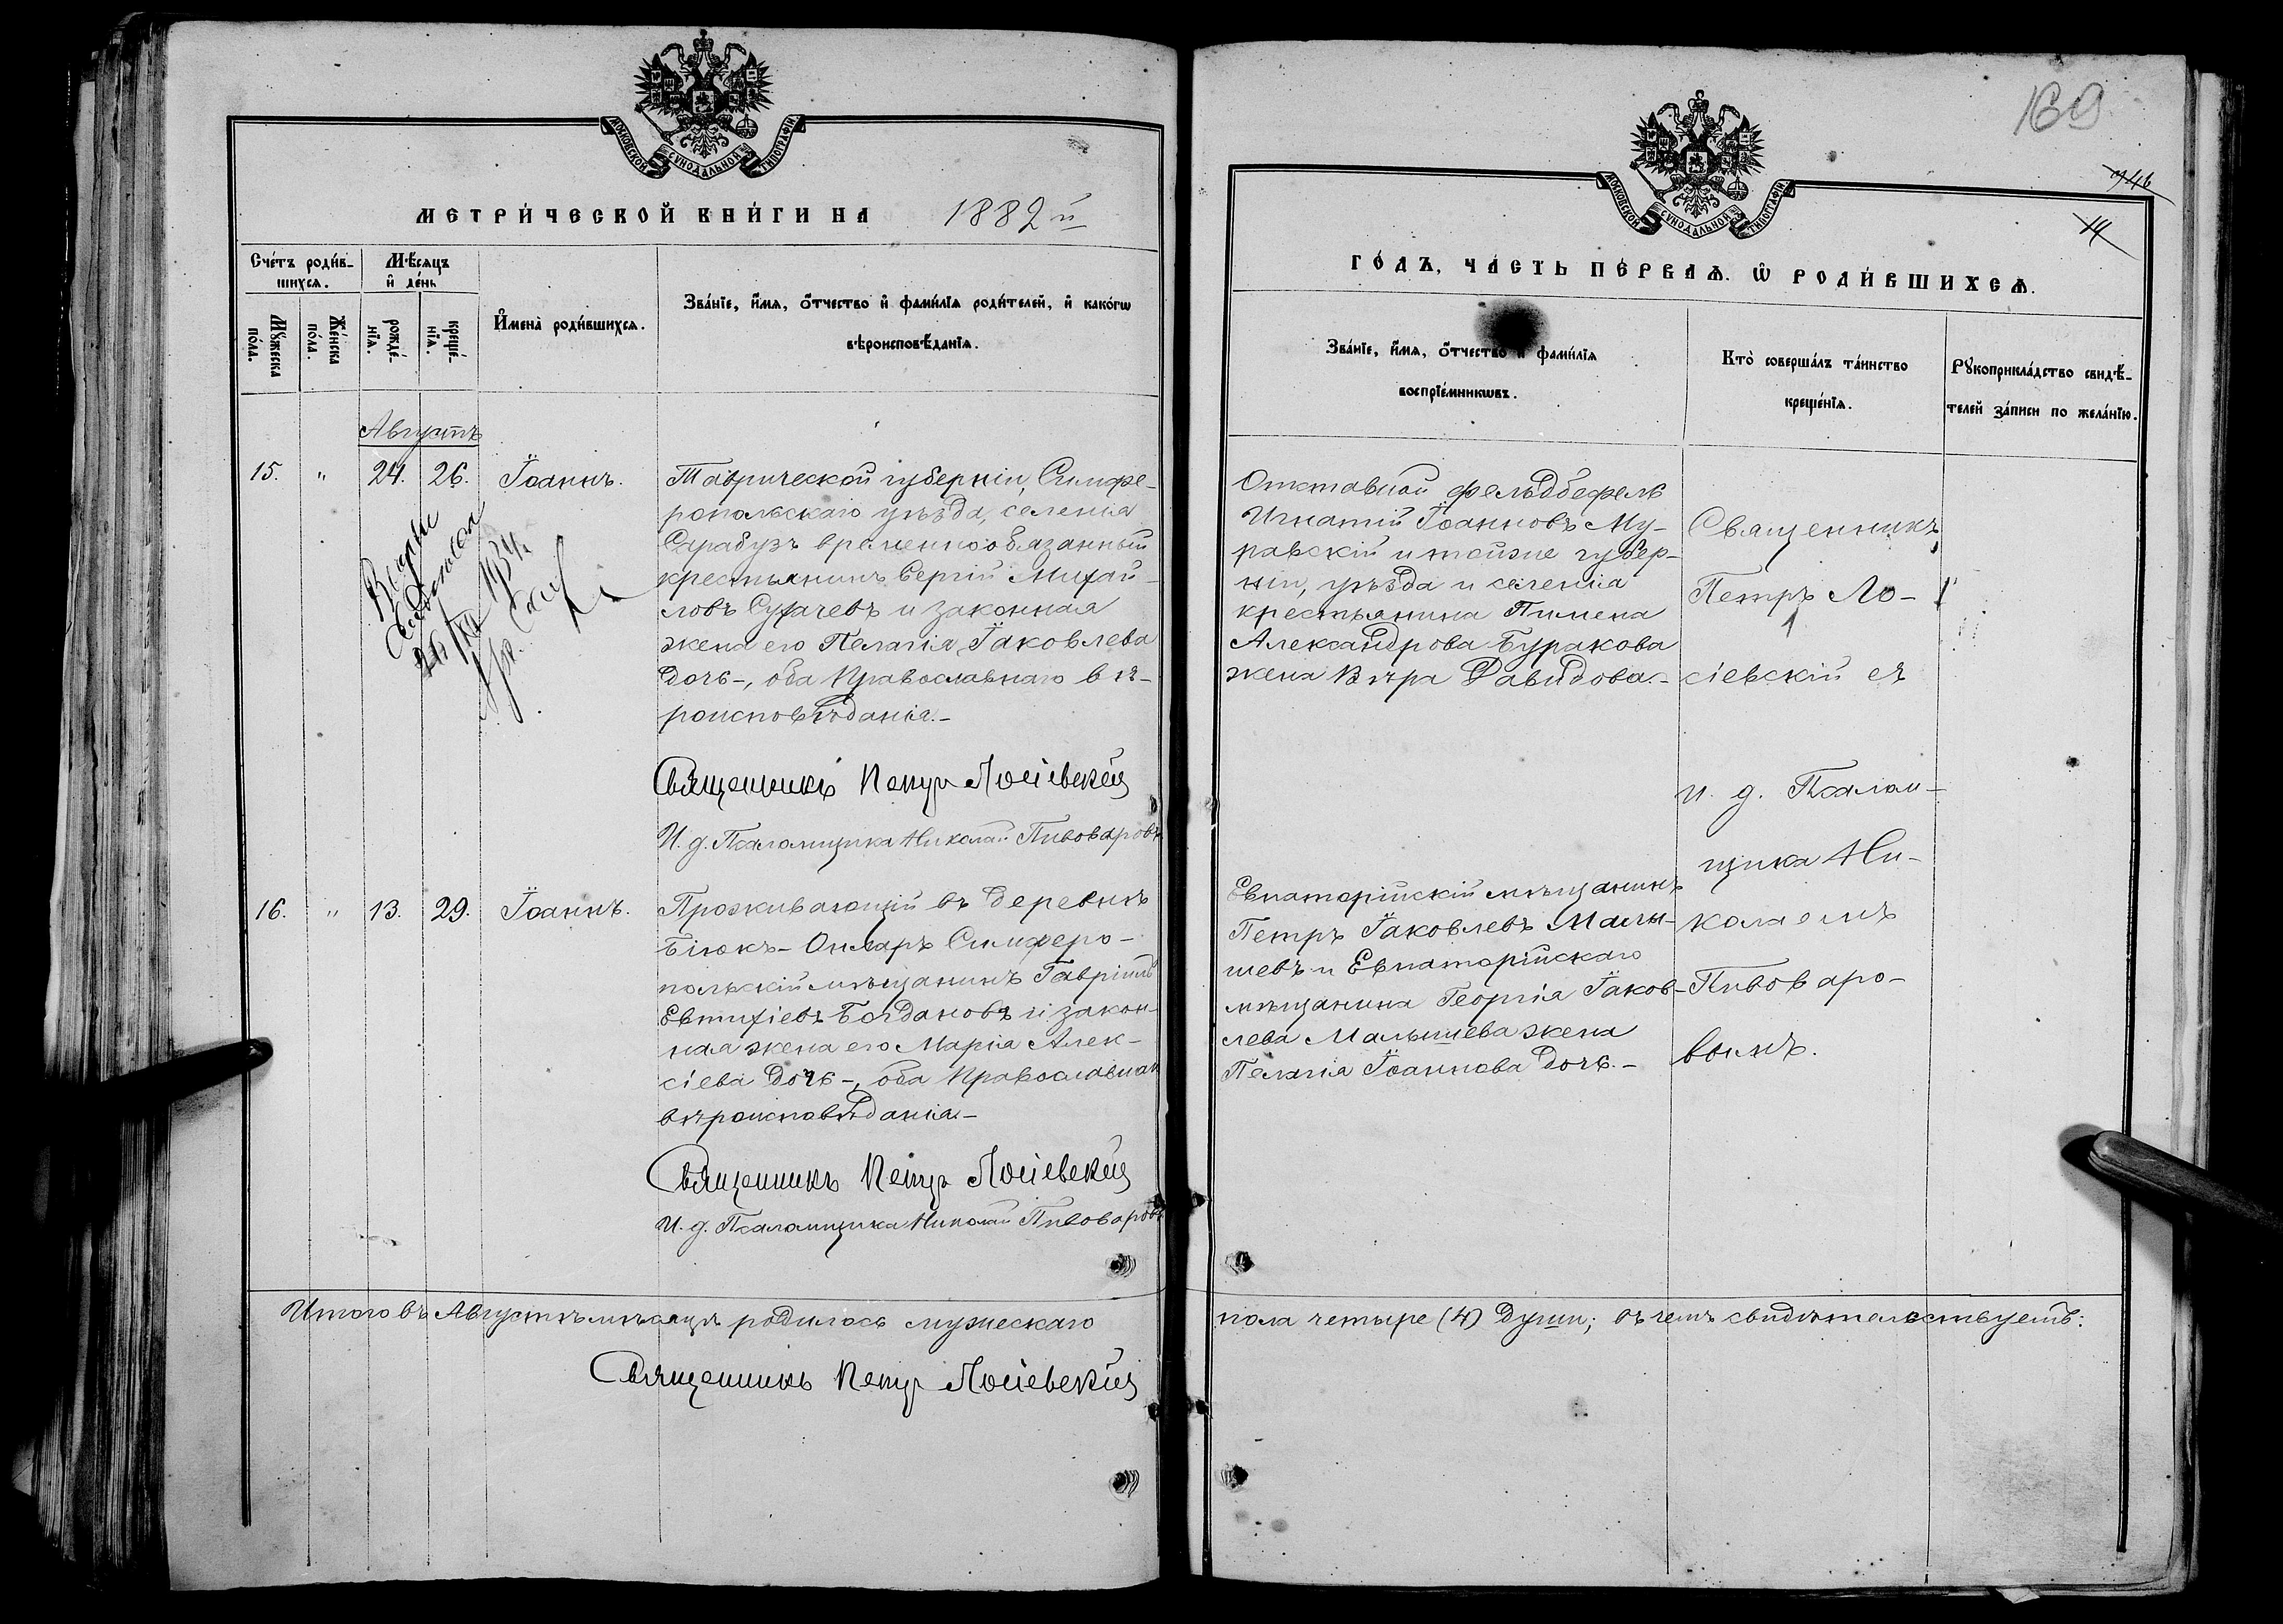 МОСКОВСКОЙ СУНОДАЛЬНОЙ ТИПОГРАФІИ
МЕТРИ́ЧЕСКОЙ КНИ́ГИ НА 1882й
Сче́тъ роди́в-
шихсѧ.
Мѣ́сѧцъ
и҆ де́нь
Мꙋ́жеска
по́ла.
Же́нска
по́ла.
рожде́-
нїѧ.
креще́-
нїѧ.
И҆мена̀ роди́вшихсѧ.
Зва́нїе, и҆́мѧ, ѻ҆́тчество и҆ фами́лїѧ роди́телей, и҆ како́гѡ
вѣроисповѣ́данїѧ.
Августъ
15. " 24. 26. Іоаннъ.
Таврической губерніи, Симфе-
ропольскаго уѣзда, селенія
Сарабузъ временнообязанный
крестьянинъ Сергій Михай-
ловъ Сухачевъ и законная
жена его Пелагія Іаковлева
дочь-, оба Православнаго вѣ-
роисповѣданія.-
Священникъ Петръ Лосіевскій
И. д. Псаломщика Николай Пивоваровъ
16. " 13. 29. Іоаннъ.
Проживающій въ деревнѣ
Біюкъ-Онларъ Симферо-
польскій мѣщанинъ Гавріилъ
Евтихіевъ Богдановъ и закон-
ная жена его Марія Алек-
сіева дочь-, оба Православнаго
вѣроисповѣданія-
Священникъ Петръ Лосіевскій
И. д. Псаломщика Николай Пивоваровъ
Итого въ Августѣ мѣсяцѣ родилось мужескаго
Священникъ Петръ Лосіевскій
169
МОСКОВСКОЙ СУНОДАЛЬНОЙ ТИПОГРАФІИ
14
ГО́ДЪ, ЧА́СТЬ ПЕ́РВАѦ. Ѡ҆ РОДИ́ВШИХСѦ.
Зва́нїе, и҆́мѧ, ѻ҆́тчество и҆ фами́лїѧ
воспрїе́мникѡвъ.
Кто̀ соверша́лъ та́инство
креще́нїѧ.
Рꙋкоприкла́дство свидѣ́-
телей за́писи по жела́нїю.
Отставной фельдфебель
Игнатій Іоанновъ Му-
равскій и тойже губер-
ніи, уѣзда и селенія
крестьянина Пимена
Александрова Буракова
жена Вѣра Давидова.-
Священникъ
Петръ Ло-
сіевскій съ
и. д. Псалом-
щика Ни-
колаемъ
Пивоваро-
вымъ.
Евпаторійскій мѣщанинъ
Петръ Іаковлевъ Малы-
шевъ и Евпаторійскаго
мѣщанина Георгія Іаков-
лева Малышева жена
Пелагія Іоаннова дочь.-
пола четыре (4) души; въ чемъ свидѣтельствуетъ: